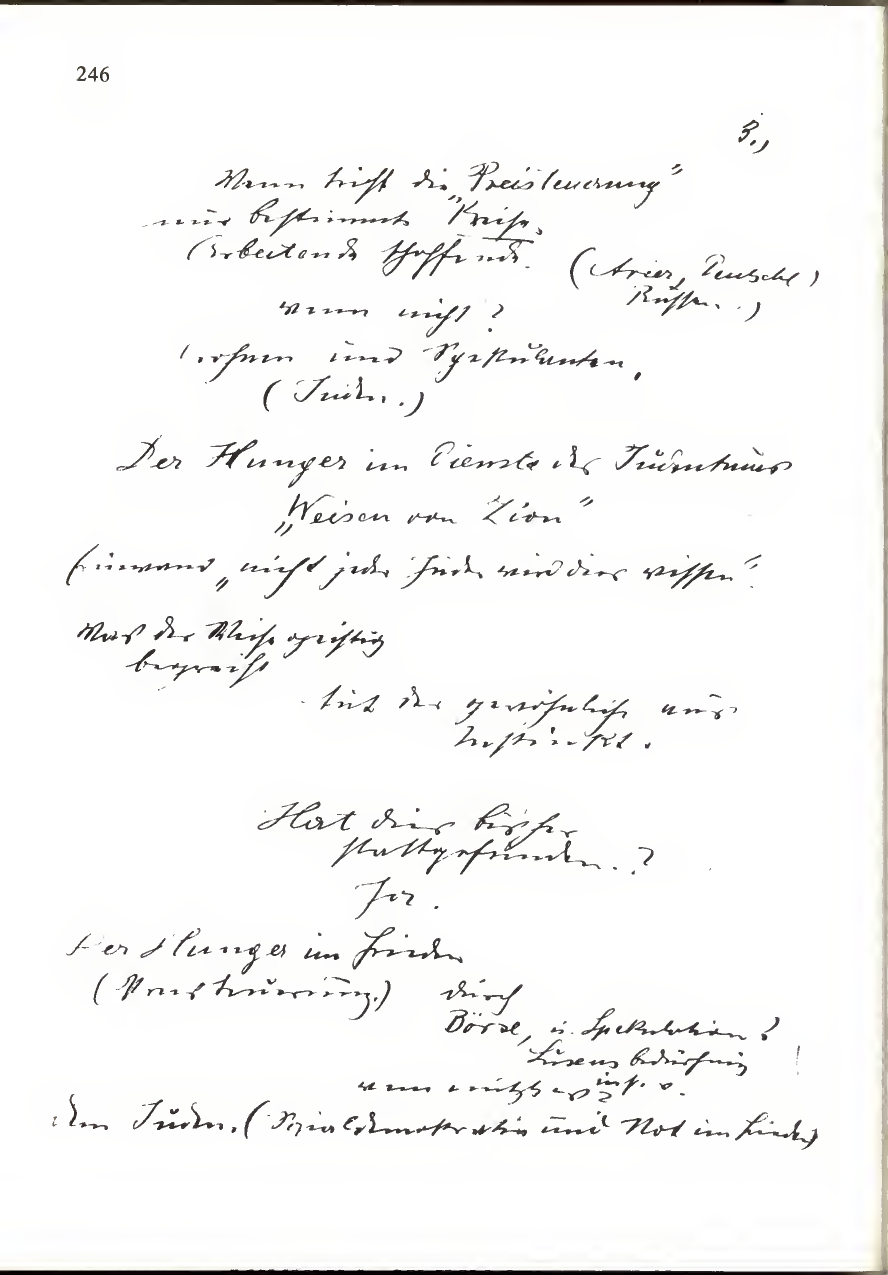 246
3.,
Wenn trifft die „Preisteuerung"
nur bestimmte Kreise.
Arbeitende Schaffende. (Arier, Deutsche)
Russen..)
wenn nicht?
und Spekulanten.
(Juden.)
Der Hunger im Dienste des Judentums
„Weisen von Zion"
(Einwand „nicht jeder Jude wird dies wissen".
Was der Weise geistig
begreift
tut der gewöhnliche aus
Instinkt.
Hat dies bisher
stattgefunden.?
Ja.
Der Hunger im Frieden
(Preisteuerung.) durch
Börse, u. Spekulation?
Luxusbedürfnis !
wem nützt es u.s.w.
?
dem Juden. (Sozialdemokratie und Not im Frieden)